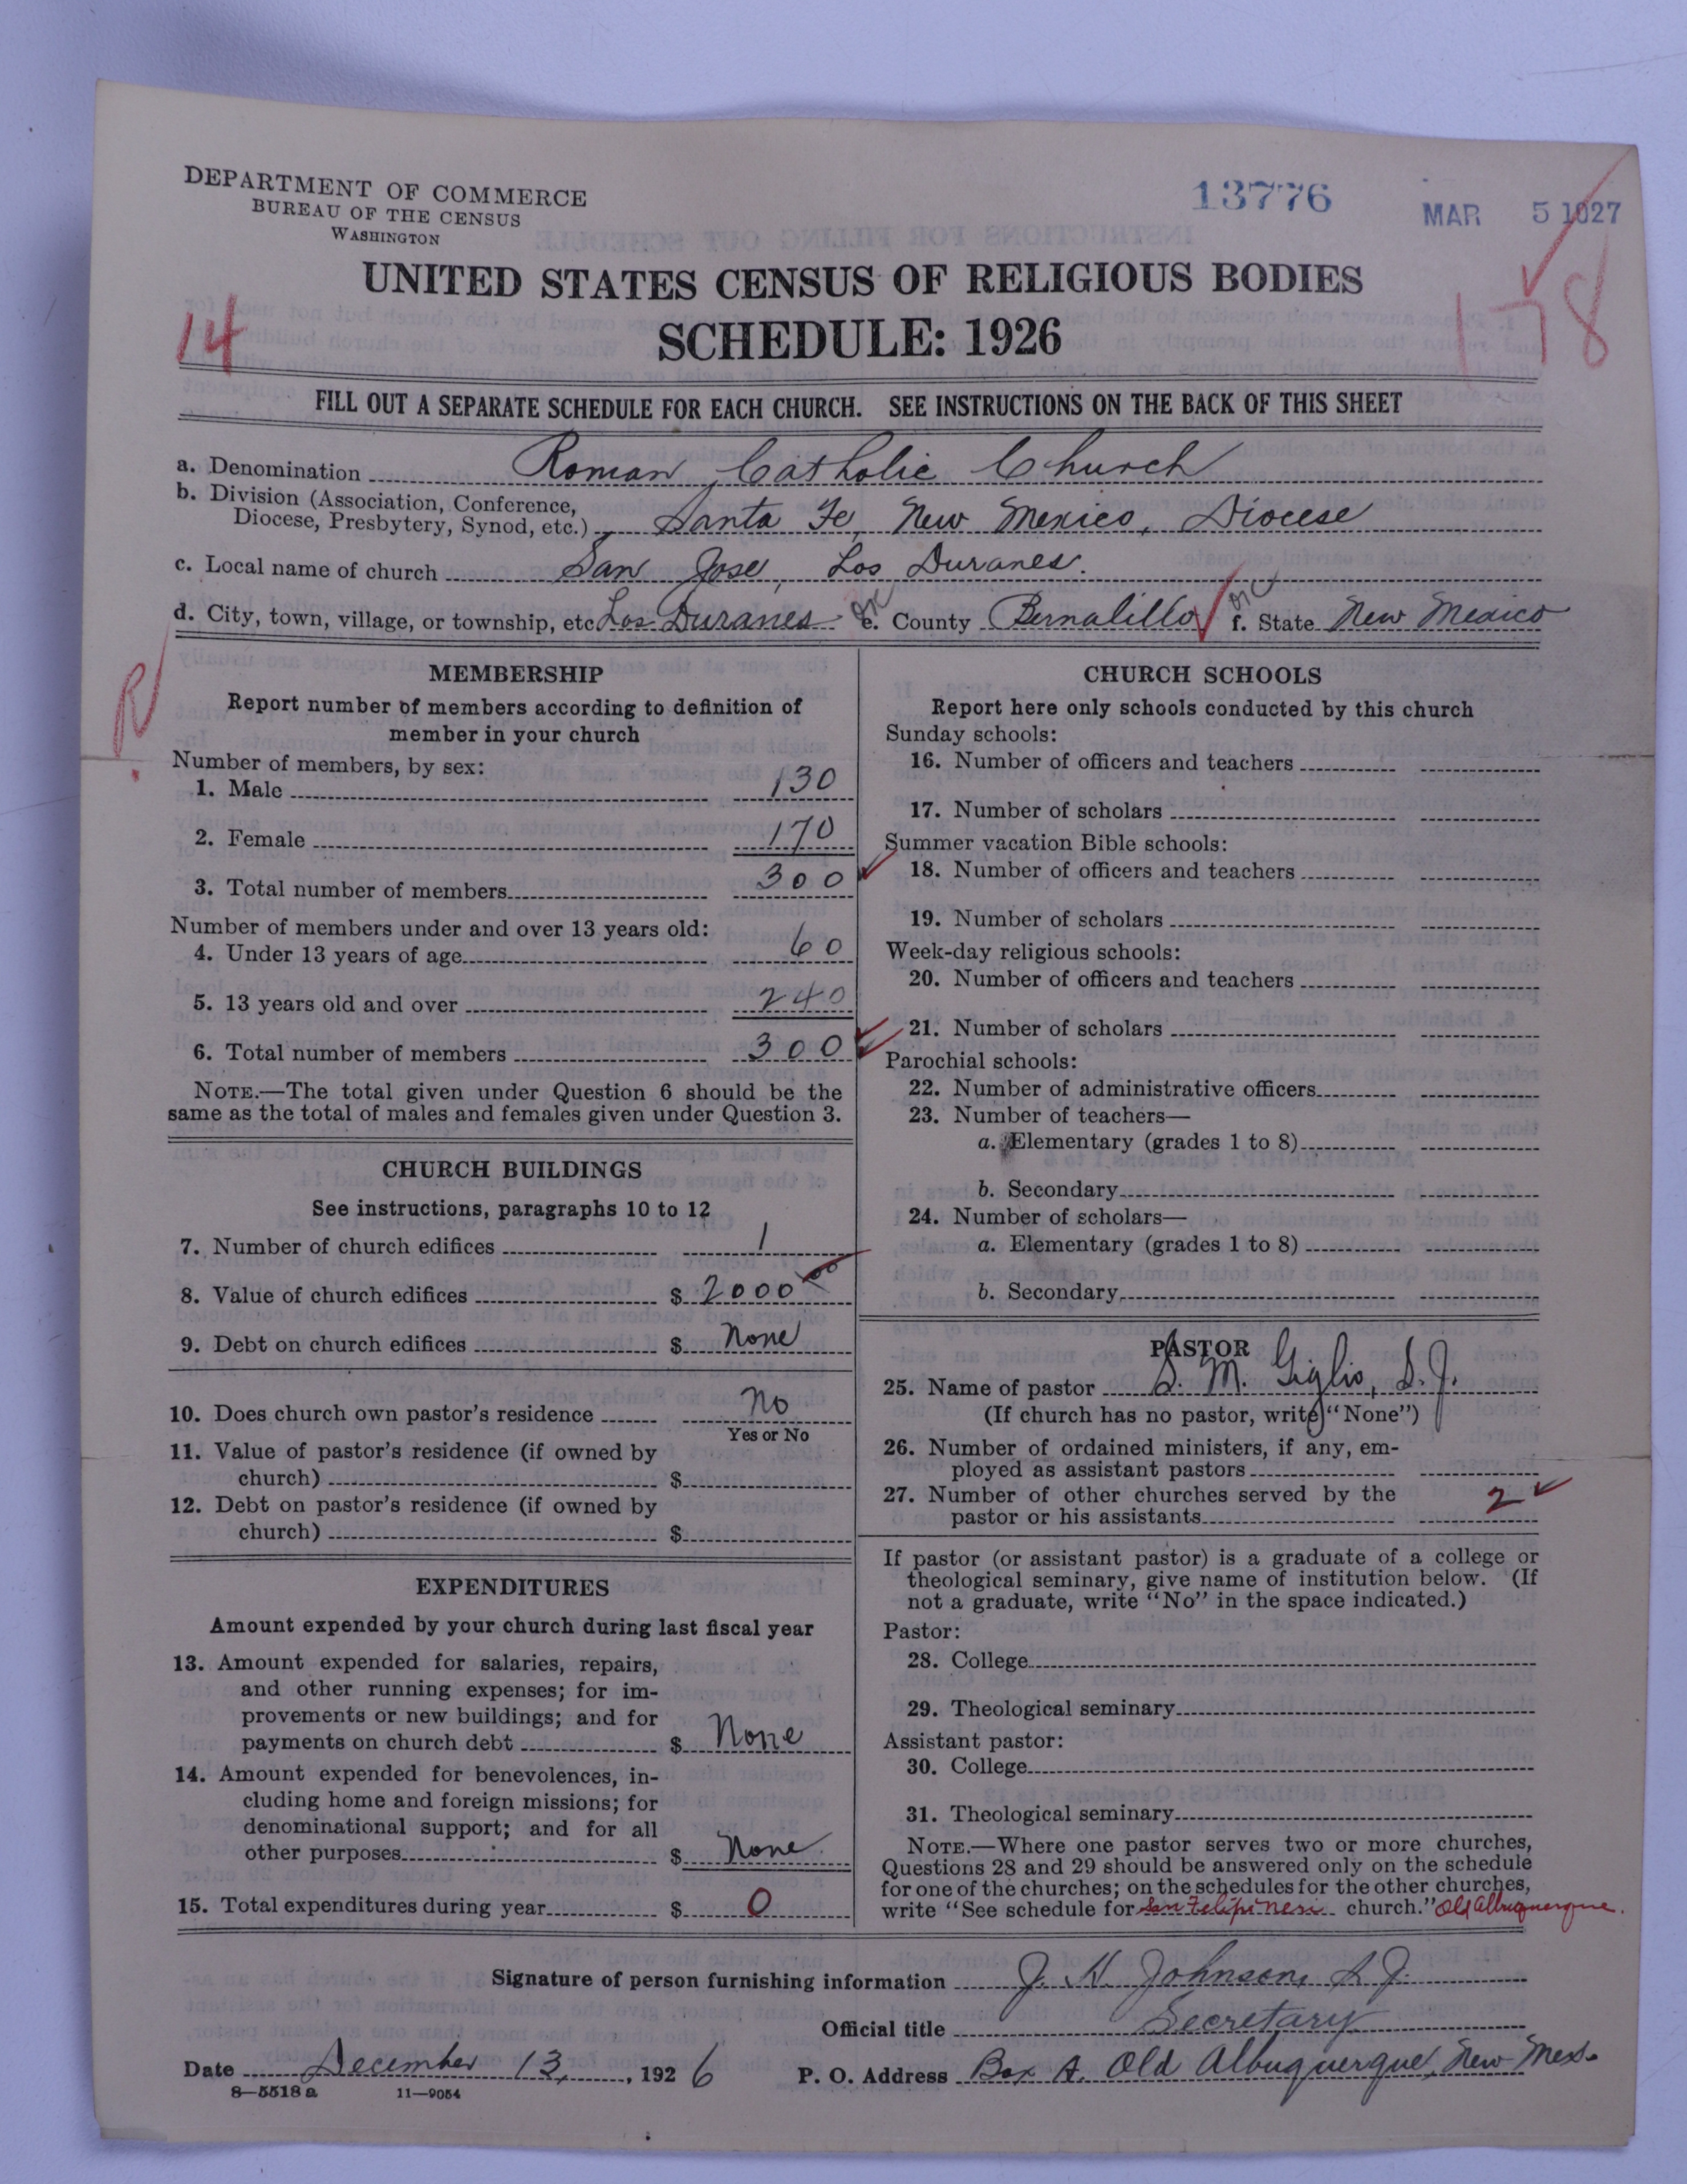 DEPARTMENT OF COMMERCE
BUREAU OF THE CENSUS
WASHINGTON
13776
MAR 5 1927
UNITED STATES CENSUS OF RELIGIOUS BODIES
14
SCHEDULE: 1926
178
FILL OUT A SEPARATE SCHEDULE FOR EACH CHURCH. SEE INSTRUCTIONS ON THE BACK OF THIS SHEET
a. Denomination Roman Catholic Church
b. Division (Association, Conference,
Diocese, Presbytery, Synod, etc.) Santa Fe, New Mexico, Diocese
c. Local name of church San Jose, Los Duranes.
d. City, town, village, or township, etc Los Duranes OK e. County Bernalillo OK f. State New Mexico
R
MEMBERSHIP
Report number of members according to definition of
member in your church
Number of members, by sex:
1. Male 130
2. Female 170
3. Total number of members 300
Number of members under and over 13 years old:
4. Under 13 years of age 60
5. 13 years old and over 240
6. Total number of members 300
NOTE.—The total given under Question 6 should be the
same as the total of males and females given under Question 3.
CHURCH BUILDINGS
See instructions, paragraphs 10 to 12
7. Number of church edifices 1
8. Value of church edifices $ 2000 00
9. Debt on church edifices $ None
10. Does church own pastor's residence No
Yes or No
11. Value of pastor's residence (if owned by
church) $
12. Debt on pastor's residence (if owned by
church) $
EXPENDITURES
Amount expended by your church during last fiscal year
13. Amount expended for salaries, repairs,
and other running expenses; for im-
provements or new buildings; and for
payments on church debt $ None
14. Amount expended for benevolences, in-
cluding home and foreign missions; for
denominational support; and for all
other purposes $ None
15. Total expenditures during year $ 0
CHURCH SCHOOLS
Report here only schools conducted by this church
Sunday schools:
16. Number of officers and teachers
17. Number of scholars
Summer vacation Bible schools:
18. Number of officers and teachers
19. Number of scholars
Week-day religious schools:
20. Number of officers and teachers
21. Number of scholars
Parochial schools:
22. Number of administrative officers
23. Number of teachers—
a. Elementary (grades 1 to 8)
b. Secondary
24. Number of scholars—
a. Elementary (grades 1 to 8)
b. Secondary
PASTOR
25. Name of pastor S. M. Giglio, S.J.
(If church has no pastor, write "None")
26. Number of ordained ministers, if any, em-
ployed as assistant pastors
27. Number of other churches served by the
pastor or his assistants 2
If pastor (or assistant pastor) is a graduate of a college or
theological seminary, give name of institution below. (If
not a graduate, write "No" in the space indicated.)
Pastor:
28. College
29. Theological seminary
Assistant pastor:
30. College
31. Theological seminary
NOTE.—Where one pastor serves two or more churches,
Questions 28 and 29 should be answered only on the schedule
for one of the churches; on the schedules for the other churches,
write "See schedule for San Felipi Neri church." Old Albuquerque.
Signature of person furnishing information J. H. Johnson, S.J.
Official title Secretary
Date December 13, 1926 P. O. Address Box A. Old Albuquerque, New Mex.
8—5518a 11—9054